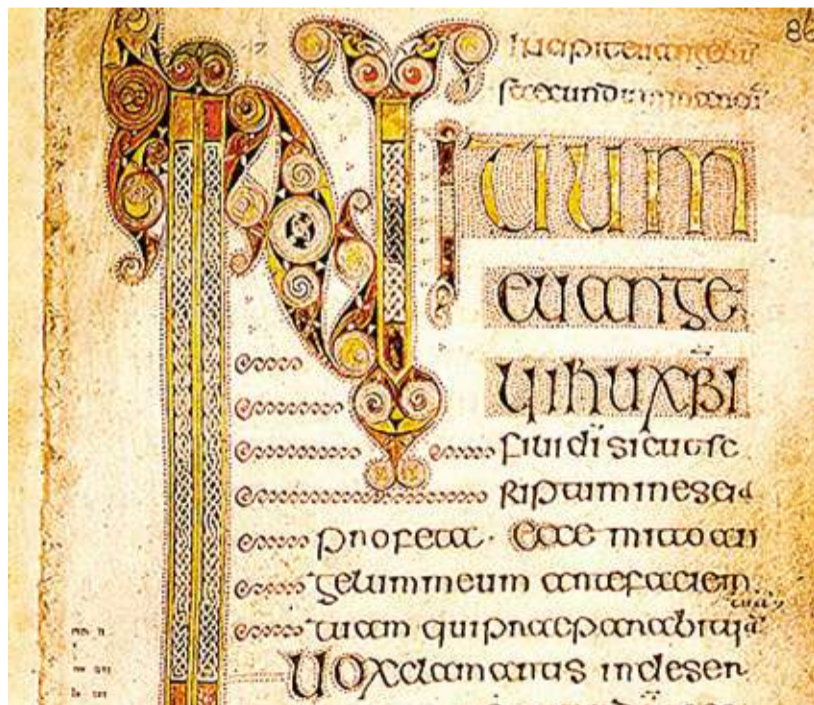 86
Incipit euangeliu
secundum
INITIUM
euange
lii ihu xpi
fili dī sicut sc
riptum in esei a
profeta · Ecce mitto an
gelum meum ante faciem
tuam qui praeparabit uiā
Uox clamantis in deser